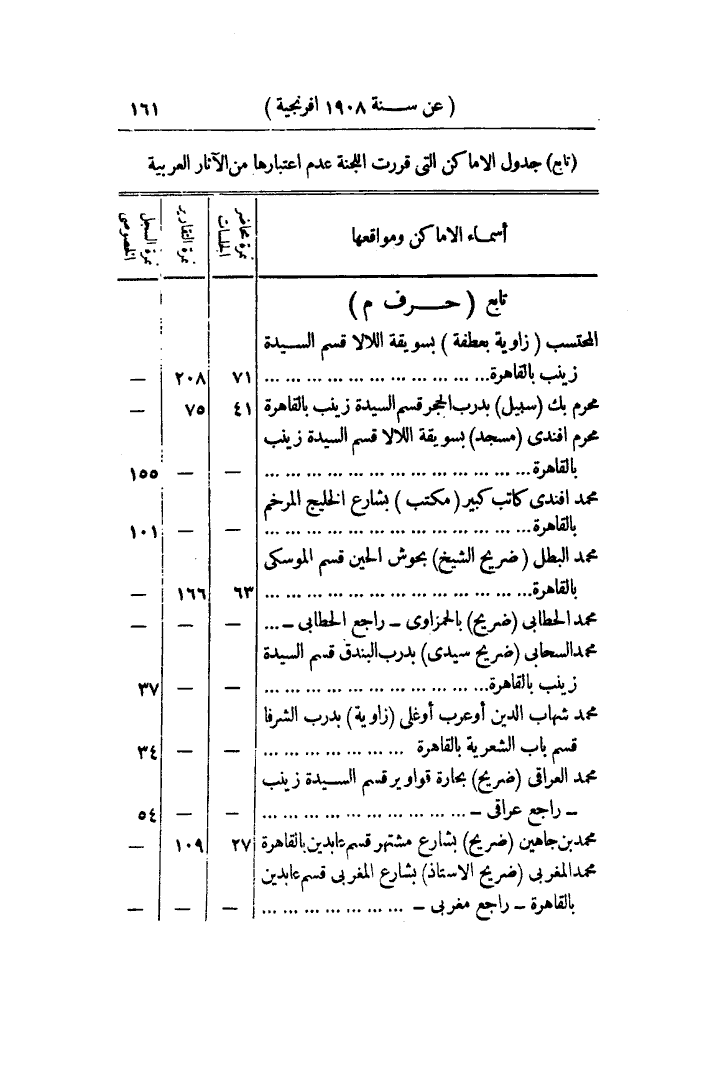 (عن سنة ١٩٠٨ افرنجية) ١٦١
(تابع) جدول الاماكن التى قررت اللجنة عدم اعتبارها من الآثار العربية
أسماء الاماكن ومواقعها | نمرة محاضر الجلسات | نمرة التقارير | نمرة السجل الخصوصى
تابع (حرف م)
المحتسب (زاوية بعطفة) بسويقة اللالا قسم السيدة
زينب بالقاهرة... ... ... ... ... ... ... ... ... ... ... ٧١ ٢٠٨ —
محرم بك (سبيل) بدرب الحجر قسم السيدة زينب بالقاهرة ٤١ ٧٥ —
محرم افندى (مسجد) بسويقة اللالا قسم السيدة زينب
بالقاهرة... ... ... ... ... ... ... ... ... ... ... ... ... — — ١٥٥
محمد افندى كاتب كبير (مكتب) بشارع الخليج المرخم
بالقاهرة... ... ... ... ... ... ... ... ... ... ... ... ... — — ١٠١
محمد البطل (ضريح الشيخ) بحوش الحين قسم الموسكى
بالقاهرة... ... ... ... ... ... ... ... ... ... ... ... ... ٦٣ ١٦٦ —
محمد الحطابى (ضريح) بالحمزاوى – راجع الحطابى – ... — — —
محمد السحابى (ضريح سيدى) بدرب البندق قسم السيدة
زينب بالقاهرة... ... ... ... ... ... ... ... ... ... ... — — ٣٧
محمد شهاب الدين أوعرب أوغلى (زاوية) بدرب الشرفا
قسم باب الشعرية بالقاهرة ... ... ... ... ... ... ... — — ٣٤
محمد العراقى (ضريح) بحارة قواوير قسم السيدة زينب
– راجع عراقى – ... ... ... ... ... ... ... ... ... ... — — ٥٤
محمد بن جاهين (ضريح) بشارع مشتهر قسم عابدين بالقاهرة ٢٧ ١٠٩ —
محمد المغربى (ضريح الاستاذ) بشارع المغربى قسم عابدين
بالقاهرة – راجع مغربى – ... ... ... ... ... ... ... — — —